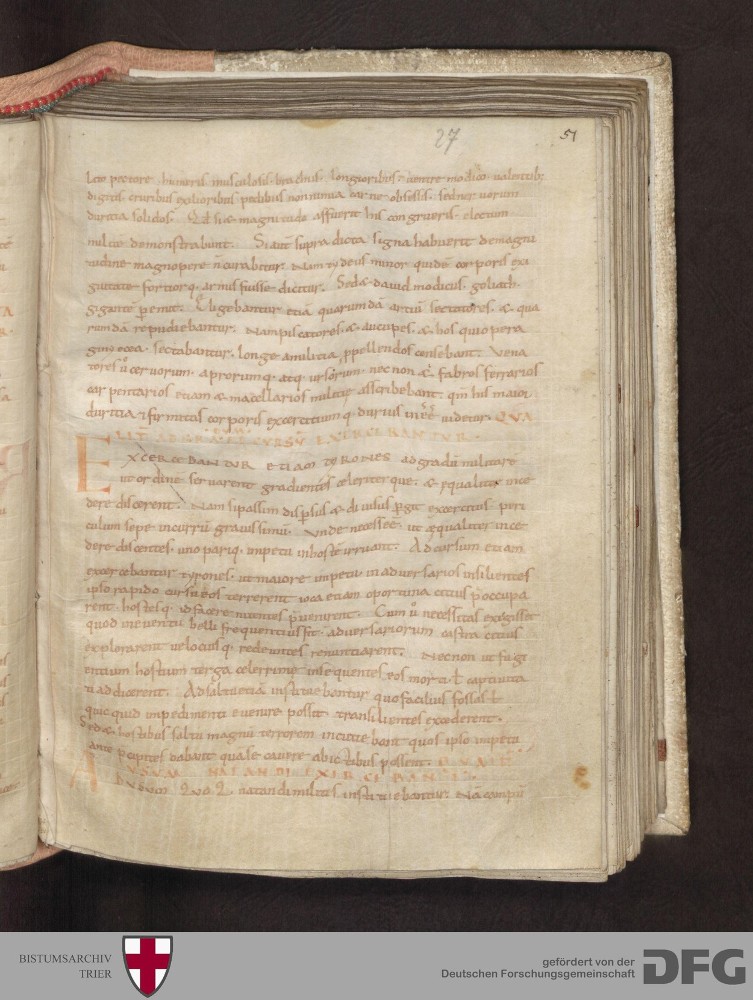 27
51
lato pectore. humeris musculosis. brachiis. longioribus. ventre modico. valentib;
digitis cruribus exilioribus pedibus non nimia carne obsessis. sed neruorum
duricia solidos. Qd si & magnitudo affuerit his congrueris. electum
militie demonstrabunt. Si aut supra dicta signa habuerit de magni
tudine magnopere n curabitur. Nam tydeus minor quidē corporis exi
guitate fortiorq. armis fuisse dicitur. Sed & dauid modicus. goliath.
gigante pemit. Eligebantur etiā quarundā artiū sectatores. & qua
rundā repudiebantur. Nam piscatores. & aucupes. & hos qui opera
sectabantur. longe a militia ppellendos censebant. Vena
tores u ceruorum. aprorumq. atq. ursorum. nec non & fabros ferrarios
carpentarios etiam & macellarios militie asscribebant. qm his maior
duritia & firmitas corporis exercitiumq. durius inesse uidetur. QVA
LIT AD GRADŪ CVRSŪ EXERCEBANTVR.
EXCERCEBANTVR etiam tyrones ad gradū militare
ut ordine seruarent gradientes celeriter que. & equaliter ince
dere discerent. Nam si passim dispsius & diuisus pgit excercitus. peri
culum sepe incurrit grauissimū. Vnde necesse e. ut equaliter ince
dere discentes. uno pariq. impetu in hoste irruant. Ad cursum etiam
excercebantur tyrones. ut maiore impetu. in aduersarios insilientes
ipso rapido cursu eos terrerent loca etiam oportuna citius poccupa
rent. hostesq. id facere nitentes puenirent. Cum u necessitas exigisset
quod in euentu belli frequentius fit. aduersariorum castra citius
explorarent uelociusq. redeuntes renuntiarent. Nec non ut fugi
entium hostium terga celerrime insequentes eos morti. ł captiuita
ti addicerent. Ad saltū etiā instituebantur quo facilius fossas ł
quicquid impedimenti euenire possit transilientes excederent.
Sed & hostibus saltu magnū terrorem incutiebant quos ipso impetu
ante pcipites dabant quale cauere ab ictibus possent. QVALIT
AD VSVM NATANDI EXERCEBANTVR.
AD VSVM Q natandi milites instituebantur. Nā campū
BISTUMSARCHIV
TRIER
gefördert von der
Deutschen Forschungsgemeinschaft
DFG